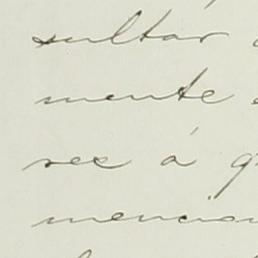 sultar
mente
see á
mencion